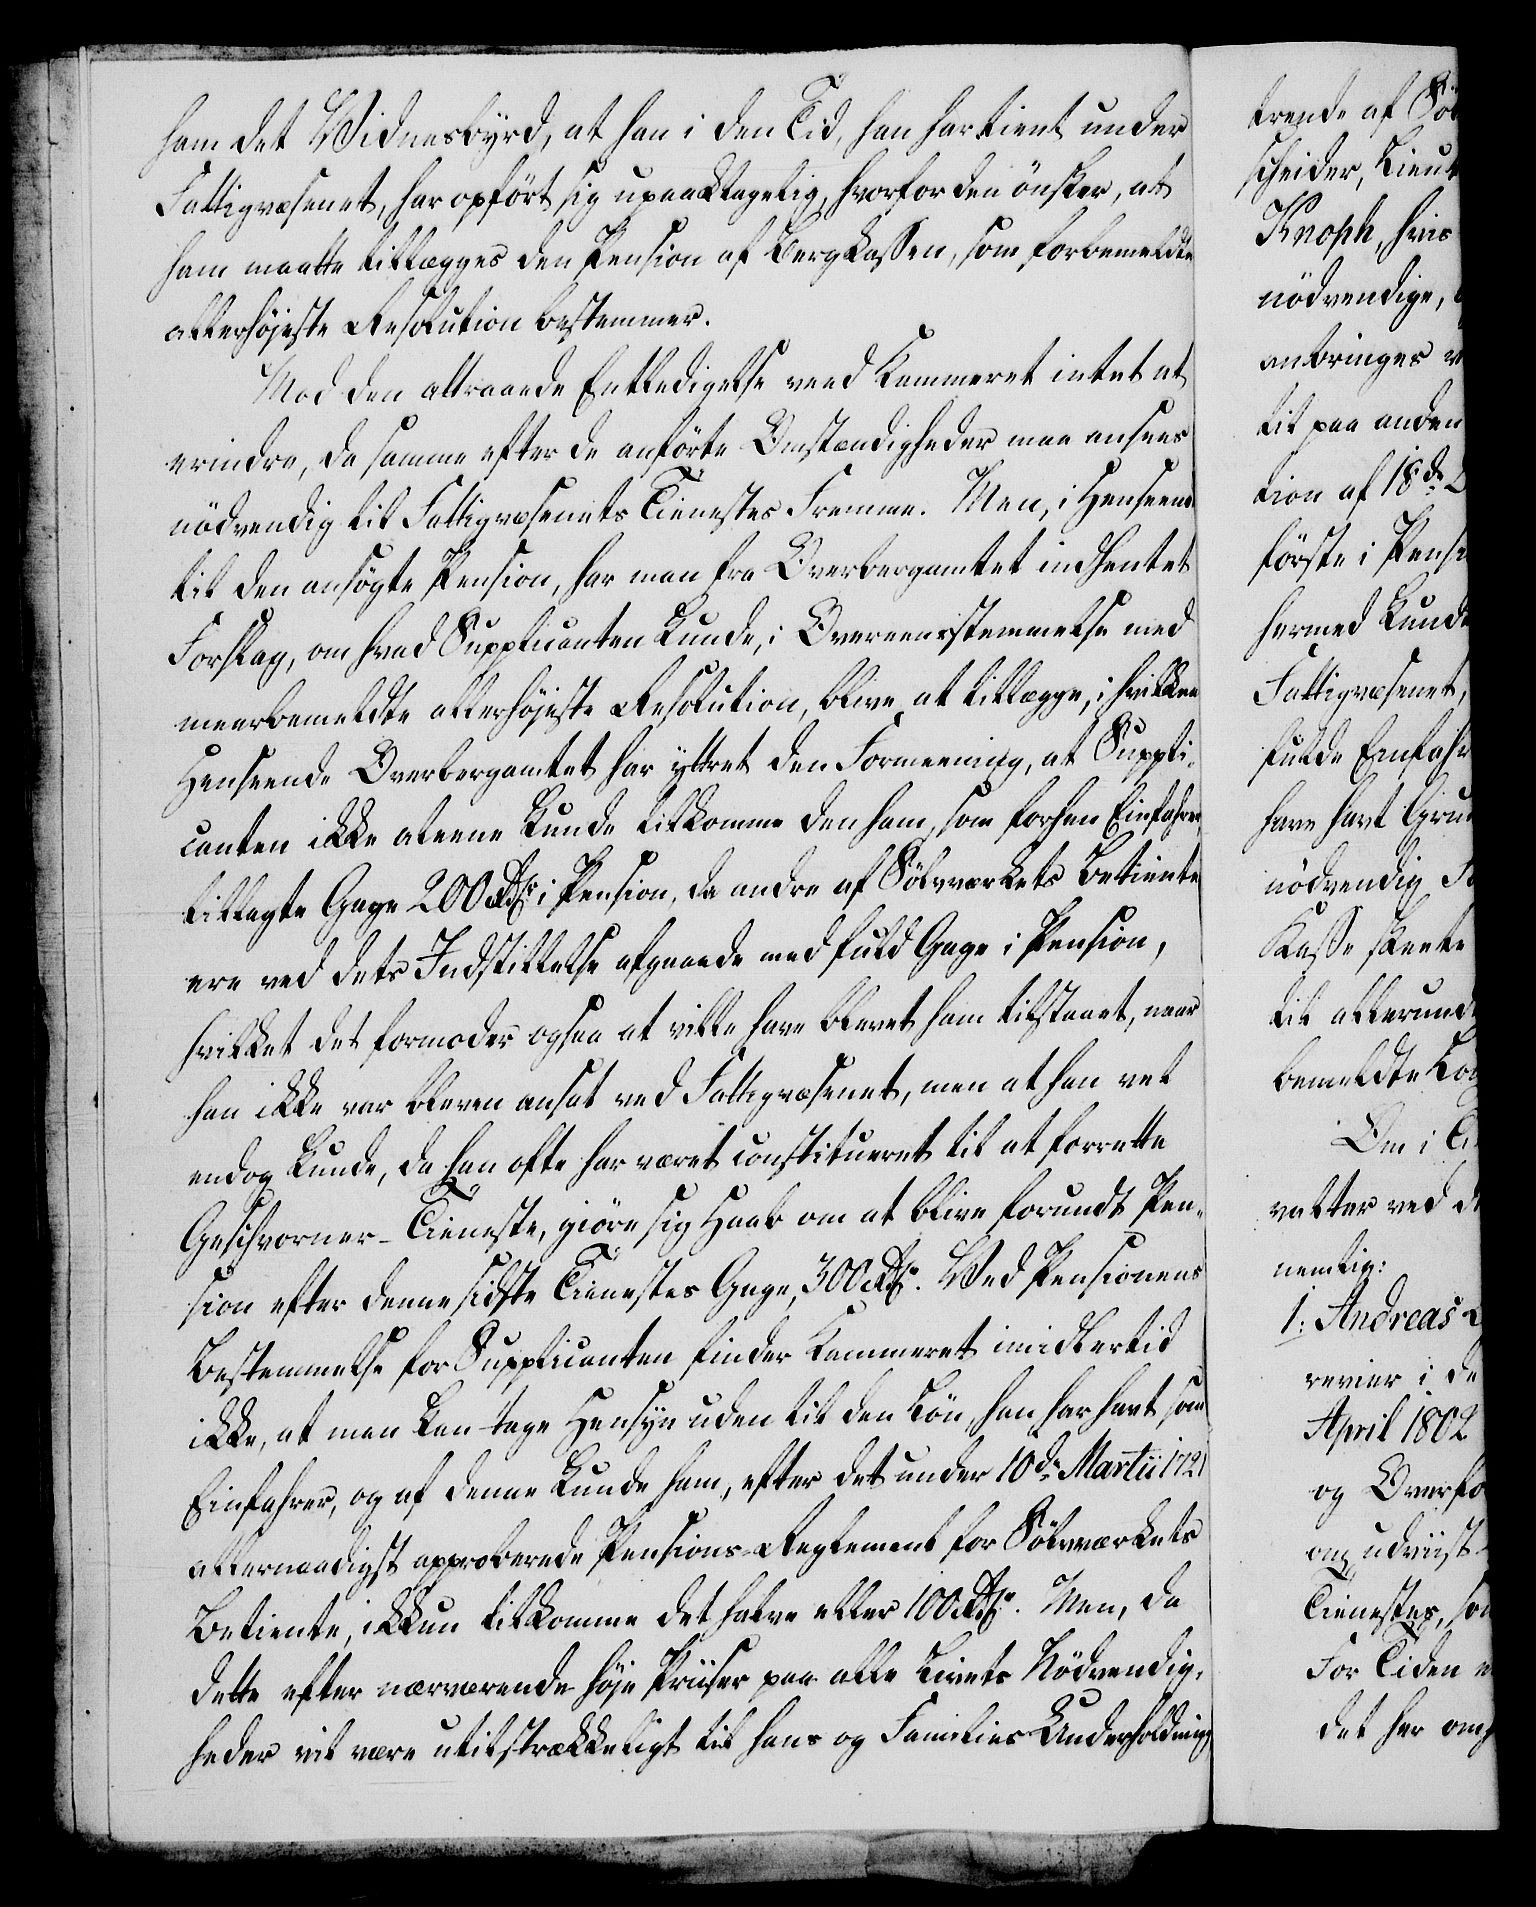 ham det Vidnesbyrd, at han i den Tid, han har tient under
Fattigvæsenet, har opført sig upaaklagelig, hvorfor den ønsker, at
ham maatte tillægges den Pension af Bergkassen, som forbemeldte
allerhøjeste Resolution bestemmer.
Mod den attraaede Entledigelse veed Kammeret intet at
erindre, da samme efter de anførte Omstændigheder maa ansees
nødvendig til Fattigvæsenets Tienestes Fremme. Men, i Henseende
til den ansøgte Pension, har man fra Overbergamtet indhentet
Forslag, om hvad Supplicanten kunde, i Overeensstemmelse med
meerbemeldte allerhøjeste Resolution, blive at tillægge, i hvilken
Henseende Overbergamtet har yttret den Formeening, at Suppli-
canten ikke aleene kunde tilkomme den ham, som forhen Einfahrer,
tillagte Gage 200 Rdlr. i Pension, da andre af Sølvværkets Betiente
ere ved dets Indstillelse afgaaede med fuld Gage i Pension,
hvilket det formoder ogsaa at ville have blevet ham tilstaaet, naar
han ikke var bleven ansat ved Fattigvæsenet, men at han vel
endog kunde, da han ofte har været constitueret til at forrette
Geschworner-Tieneste, giøre sig Haab om at blive forundt Pen-
sion efter denne sidste Tienestes Gage, 300 Rdlr. Ved Pensionens
Bestemmelse for Supplicanten finder Kammeret imidlertid
ikke, at man kan tage Hensyn uden til den Løn, han har havt som
Einfahrer, og af denne kunde ham, efter det under 10de Martii 1721
allernaadigst approberede Pensions-Reglement for Sølvværkets
Betiente, ikkun tilkomme det halve eller 100 Rdlr. Men, da
dette efter nærværende høje Priiser paa alle Livets Nødvendig-
heder vil være utilstrækkeligt til hans og Families Underholdning
trende af Søl
scheider, Lieut
Knoph, hvis
nødvendige,
anbringes
til paa anden
tion af 18de
første i Pensi
hermed kunde
Fattigvæsenet,
fulde Einfahr
have havt Grun
nødvendig
Kasse skeete
til allerund
bemeldte
Om i
valter ved
nemlig:
1; Andreas
revier i de
April 1802
og Overfo
og udviist
Tienestes, som
For Tiden
det her om